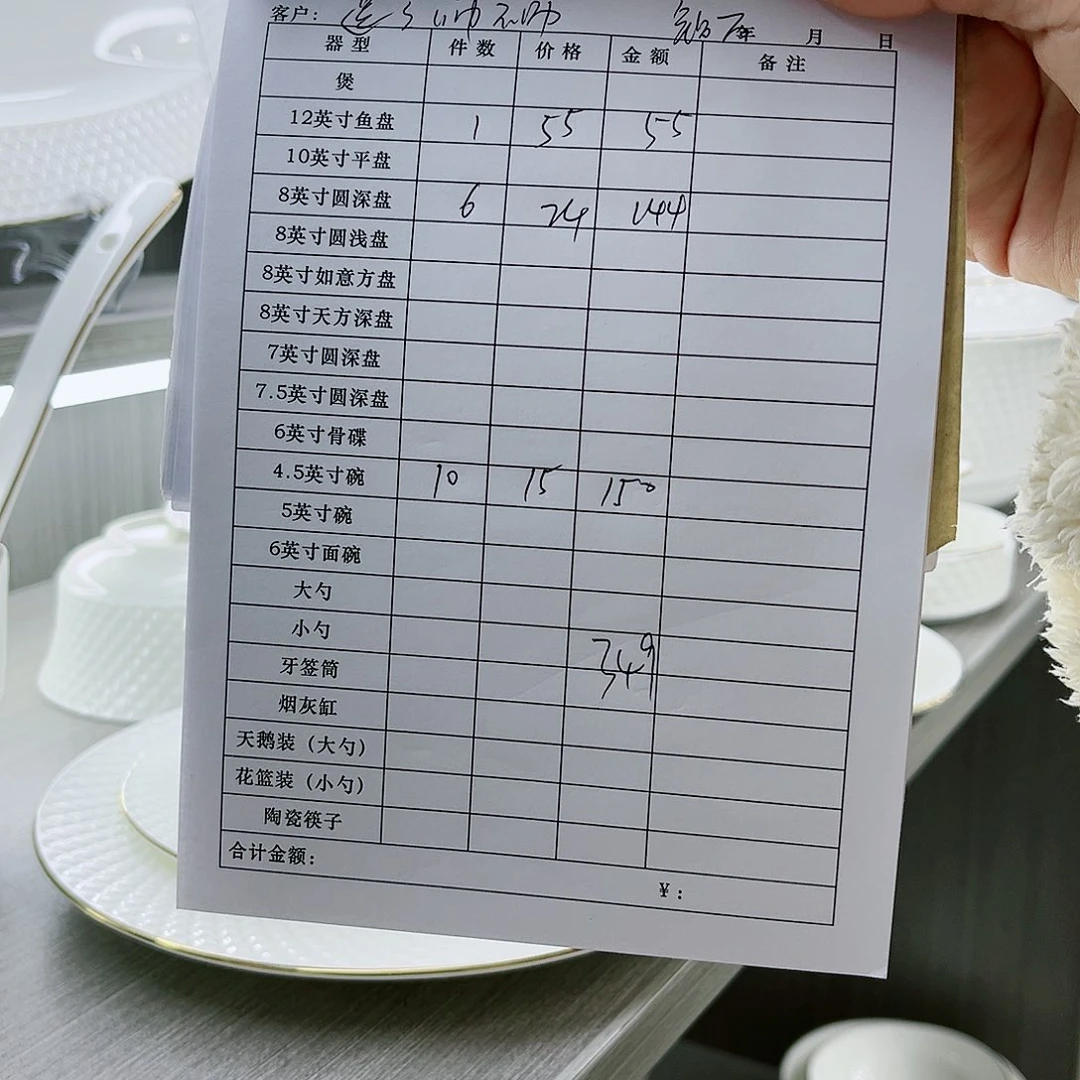 客户： 年 月 日
器型 件数 价格 金额 备注
煲
12英寸鱼盘 1 55 55
10英寸平盘
8英寸圆深盘 6 24 144
8英寸圆浅盘
8英寸如意方盘
8英寸天方深盘
7英寸圆深盘
7.5英寸圆深盘
6英寸骨碟
4.5英寸碗 10 15 150
5英寸碗
6英寸面碗
大勺
小勺
349
牙签筒
烟灰缸
天鹅装（大勺）
花篮装（小勺）
陶瓷筷子
合计金额： ¥：